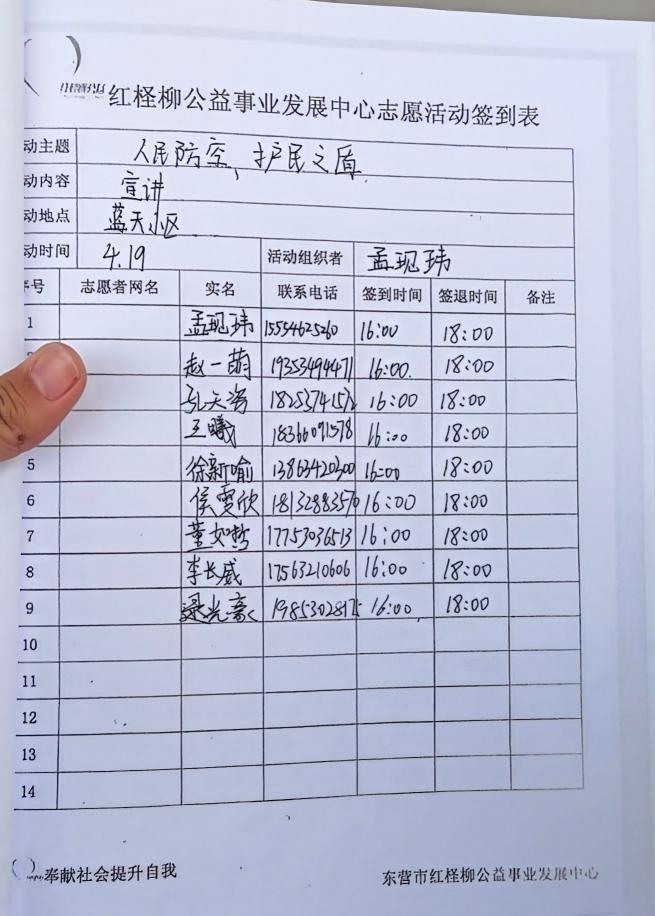 红柽柳公益事业发展中心志愿活动签到表
动主题 人民防空、护民之盾
动内容 宣讲
动地点 蓝天小区
动时间 4.19 活动组织者 孟现玮
序号 志愿者网名 实名 联系电话 签到时间 签退时间 备注
1 孟现玮 15554625260 16:00 18:00
赵一萌 19353494471 16:00. 18:00
孔天浩 18253741572 16:00 18:00
王曦 18366091578 16:00 18:00
5 徐新喻 13863420300 16:00 18:00
6 侯雯欣 18132883570 16:00 18:00
7 董文哲 17753036513 16:00 18:00
8 李长威 17563210606 16:00 18:00
9 梁光豪 19853028175 16:00 18:00
10
11
12
13
14
奉献社会提升自我 东营市红柽柳公益事业发展中心